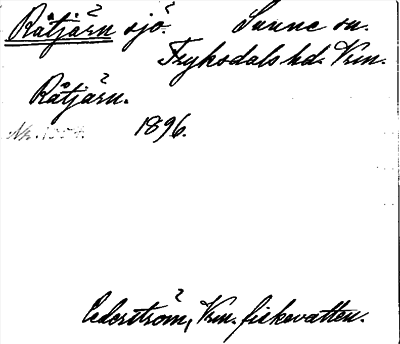 Råtjärn sjö. Sunne sn.
Fryksdals hd. Vrm.
Råtjärn.
1896.
Cederström, Vrm. fiskevatten.